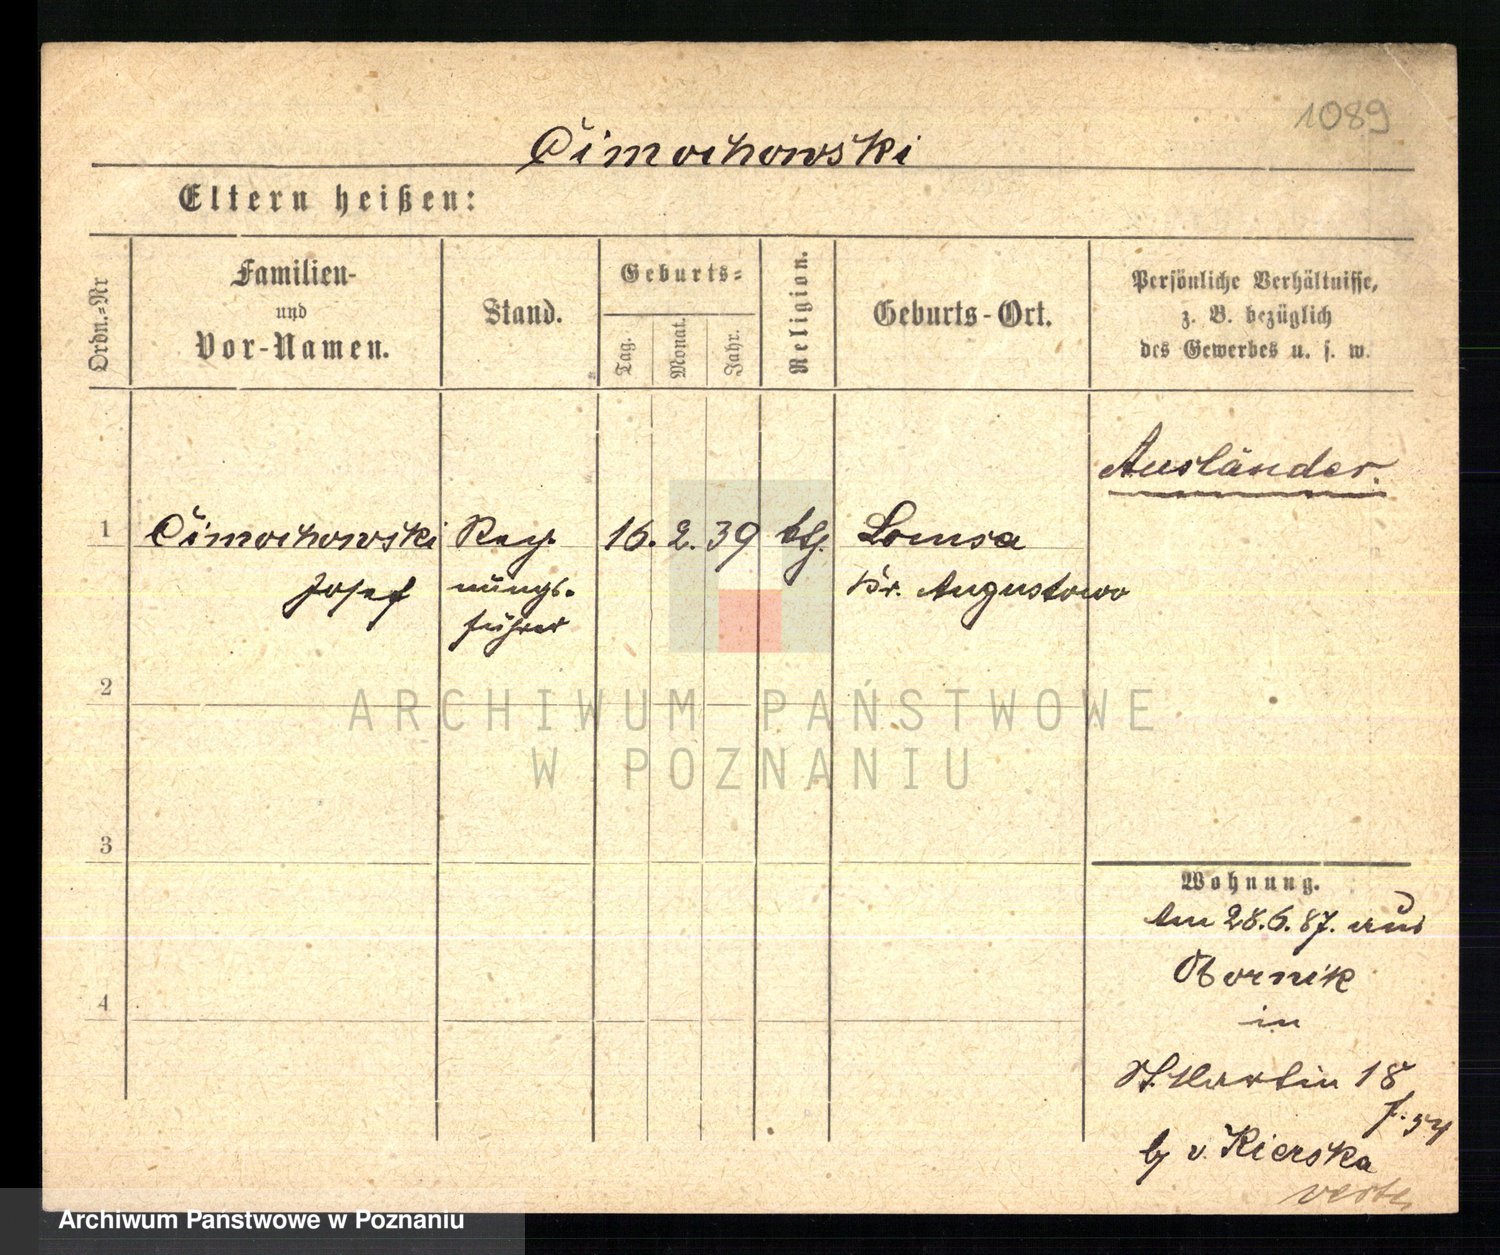 1089
Cimochowski
Eltern heißen:
Ordn.=Nr
Familien-
und
Vor-Namen.
Stand.
Geburts=
Tag.
Monat.
Jahr.
Religion.
Geburts-Ort.
Persönliche Verhältnisse,
z. B. bezüglich
des Gewerbes u. s. w.
Ausländer.
1 Cimochowski 16. 2. 39 Lomsa
Josef nungs- Kr. Augustowo
führer
2
3
4
ARCHIWUM PAŃSTWOWE
W POZNANIU
Wohnung.
Am 28.6.87. aus
Obornik
in
St. Martin 18
v. Kierska
Archiwum Państwowe w Poznaniu